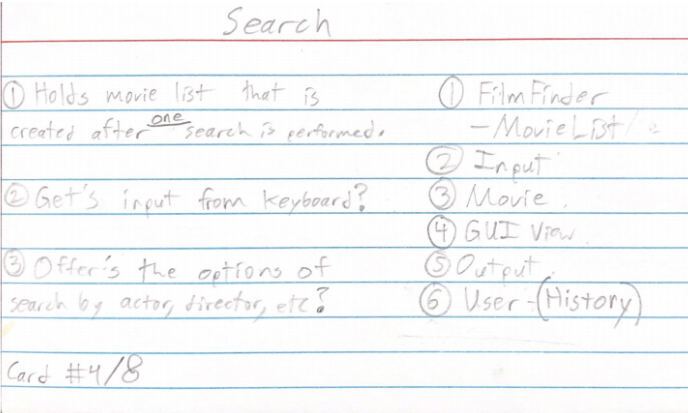 Search
① Holds movie list that is
created after one search is performed.
② Get's input from keyboard?
③ Offer's the options of
search by actor, director, etc?
Card #4/8
① FilmFinder
- MovieList/
② Input
③ Movie.
④ GUI View.
⑤ Output.
⑥ User - (History)